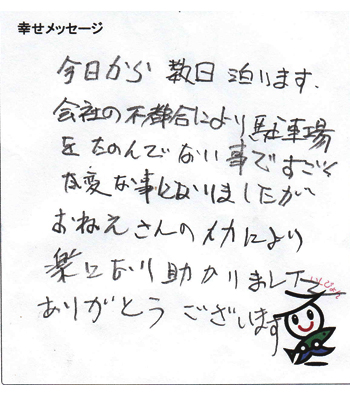 幸せメッセージ
今日から 数日 泊います.
会社の不都合により駐車場
をたのんでない事ですごく
な変な事になりましたが
おねえさんの 力により
楽になり 助かりました
ありがとう ございます